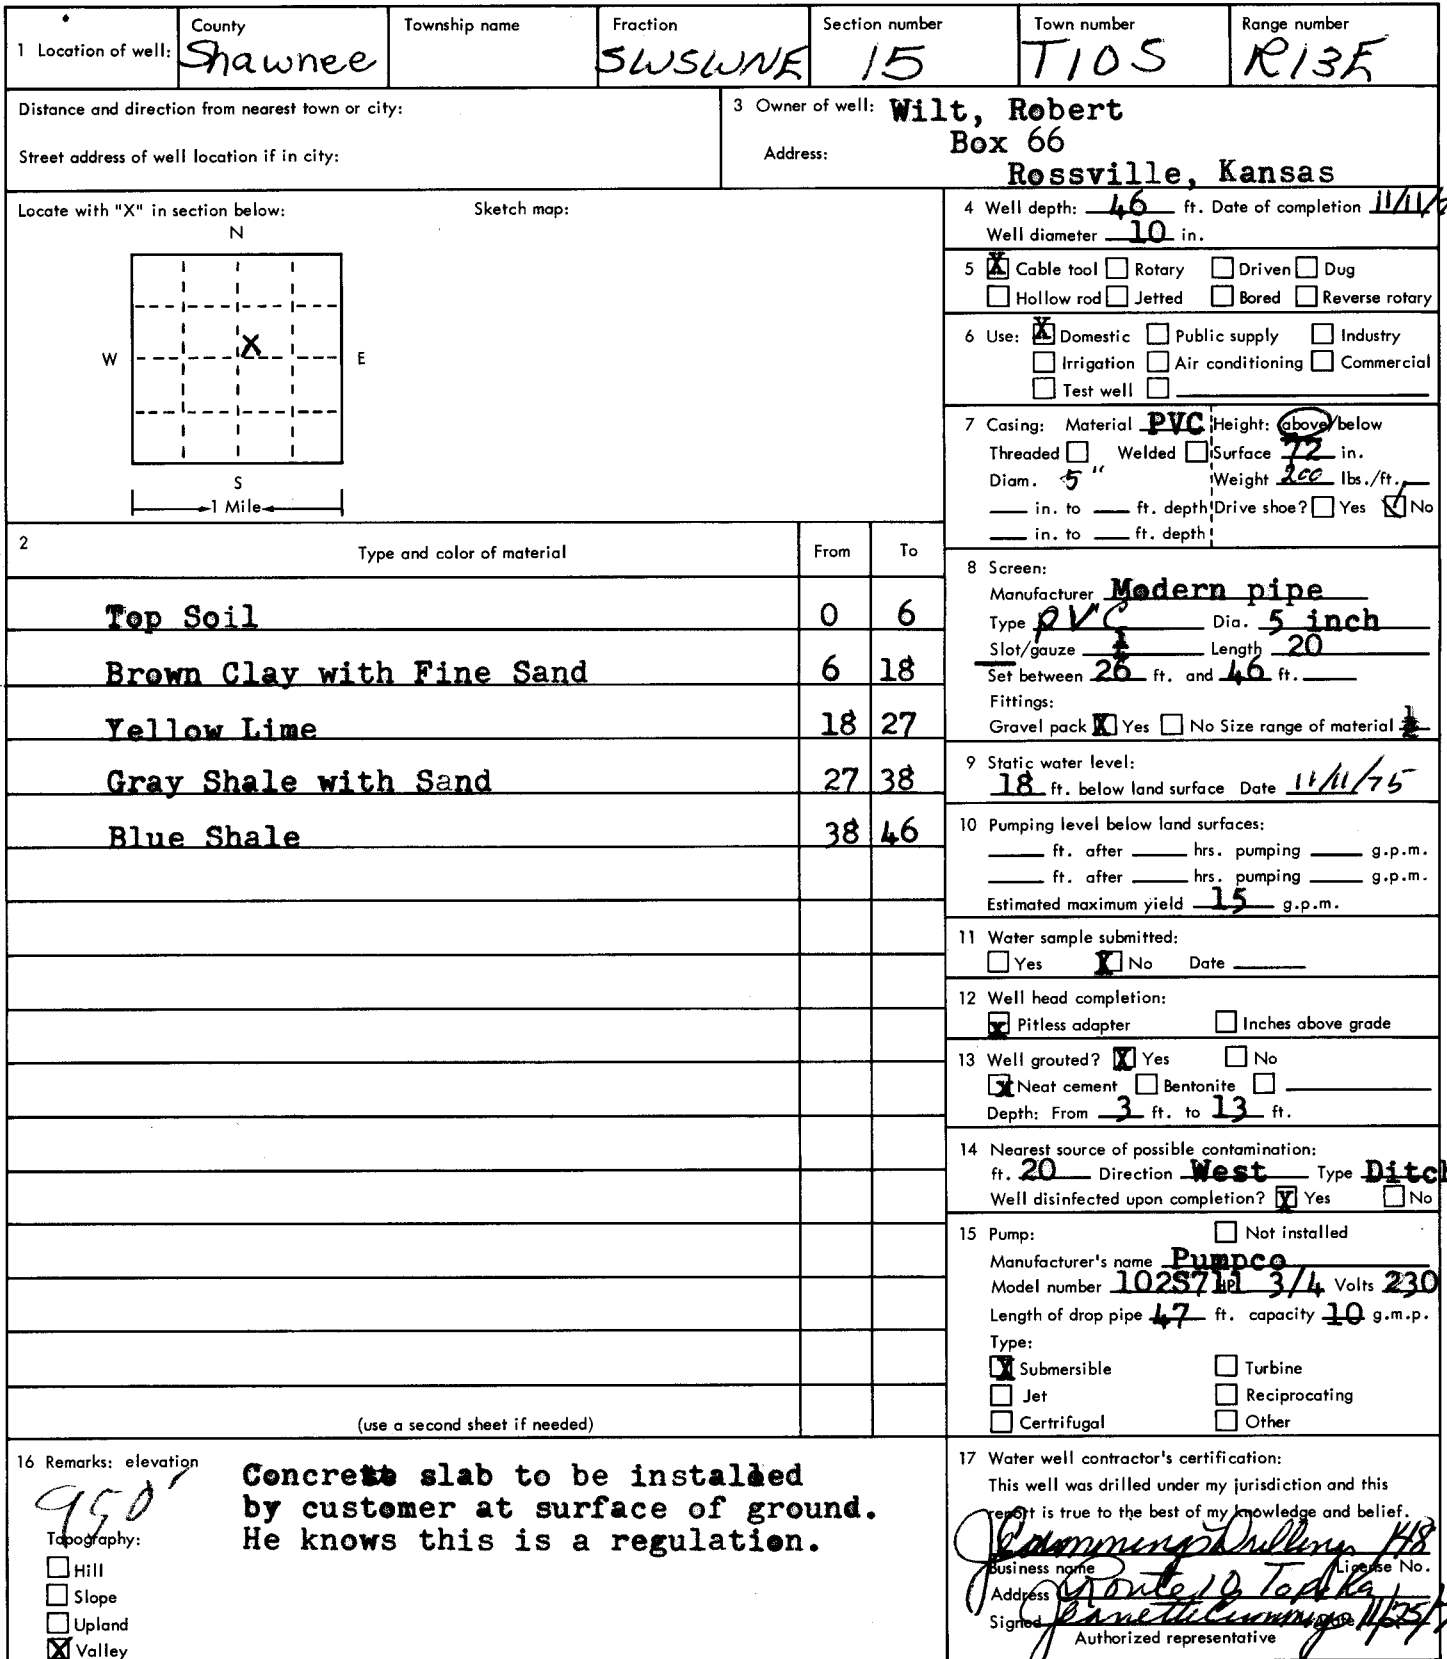 1 Location of well: County Shawnee Township name Fraction SWSWNE Section number 15 Town number T10S Range number R13E
Distance and direction from nearest town or city:
Street address of well location if in city:
3 Owner of well: Wilt, Robert
Address: Box 66
Rossville, Kansas
Locate with "X" in section below: Sketch map:
N
W X E
S
1 Mile
4 Well depth: 46 ft. Date of completion 11/11/
Well diameter 10 in.
5 X Cable tool Rotary Driven Dug
Hollow rod Jetted Bored Reverse rotary
6 Use: X Domestic Public supply Industry
Irrigation Air conditioning Commercial
Test well
7 Casing: Material PVC Height: above/below
Threaded Welded Surface 72 in.
Diam. 5" Weight 200 lbs./ft.
in. to ft. depth Drive shoe? Yes ✓ No
in. to ft. depth
2 Type and color of material From To
Top Soil 0 6
Brown Clay with Fine Sand 6 18
Yellow Lime 18 27
Gray Shale with Sand 27 38
Blue Shale 38 46
(use a second sheet if needed)
8 Screen:
Manufacturer Modern pipe
Type PVC Dia. 5 inch
Slot/gauze Length 20
Set between 26 ft. and 46 ft.
Fittings:
Gravel pack X Yes No Size range of material
9 Static water level:
18 ft. below land surface Date 11/11/75
10 Pumping level below land surfaces:
ft. after hrs. pumping g.p.m.
ft. after hrs. pumping g.p.m.
Estimated maximum yield 15 g.p.m.
11 Water sample submitted:
Yes X No Date
12 Well head completion:
x Pitless adapter Inches above grade
13 Well grouted? X Yes No
x Neat cement Bentonite
Depth: From 3 ft. to 13 ft.
14 Nearest source of possible contamination:
ft. 20 Direction West Type Ditch
Well disinfected upon completion? X Yes No
15 Pump: Not installed
Manufacturer's name Pumpco
Model number 102S711 HP 3/4 Volts 230
Length of drop pipe 47 ft. capacity 10 g.m.p.
Type:
X Submersible Turbine
Jet Reciprocating
Certrifugal Other
16 Remarks: elevation 950'
Concrete slab to be installed
by customer at surface of ground.
He knows this is a regulation.
Topography:
Hill
Slope
Upland
X Valley
17 Water well contractor's certification:
This well was drilled under my jurisdiction and this
report is true to the best of my knowledge and belief.
Cummings Drilling 148
Business name License No.
Address Route 10 Topeka
Signed Jeanette Cummings 11/25/
Authorized representative